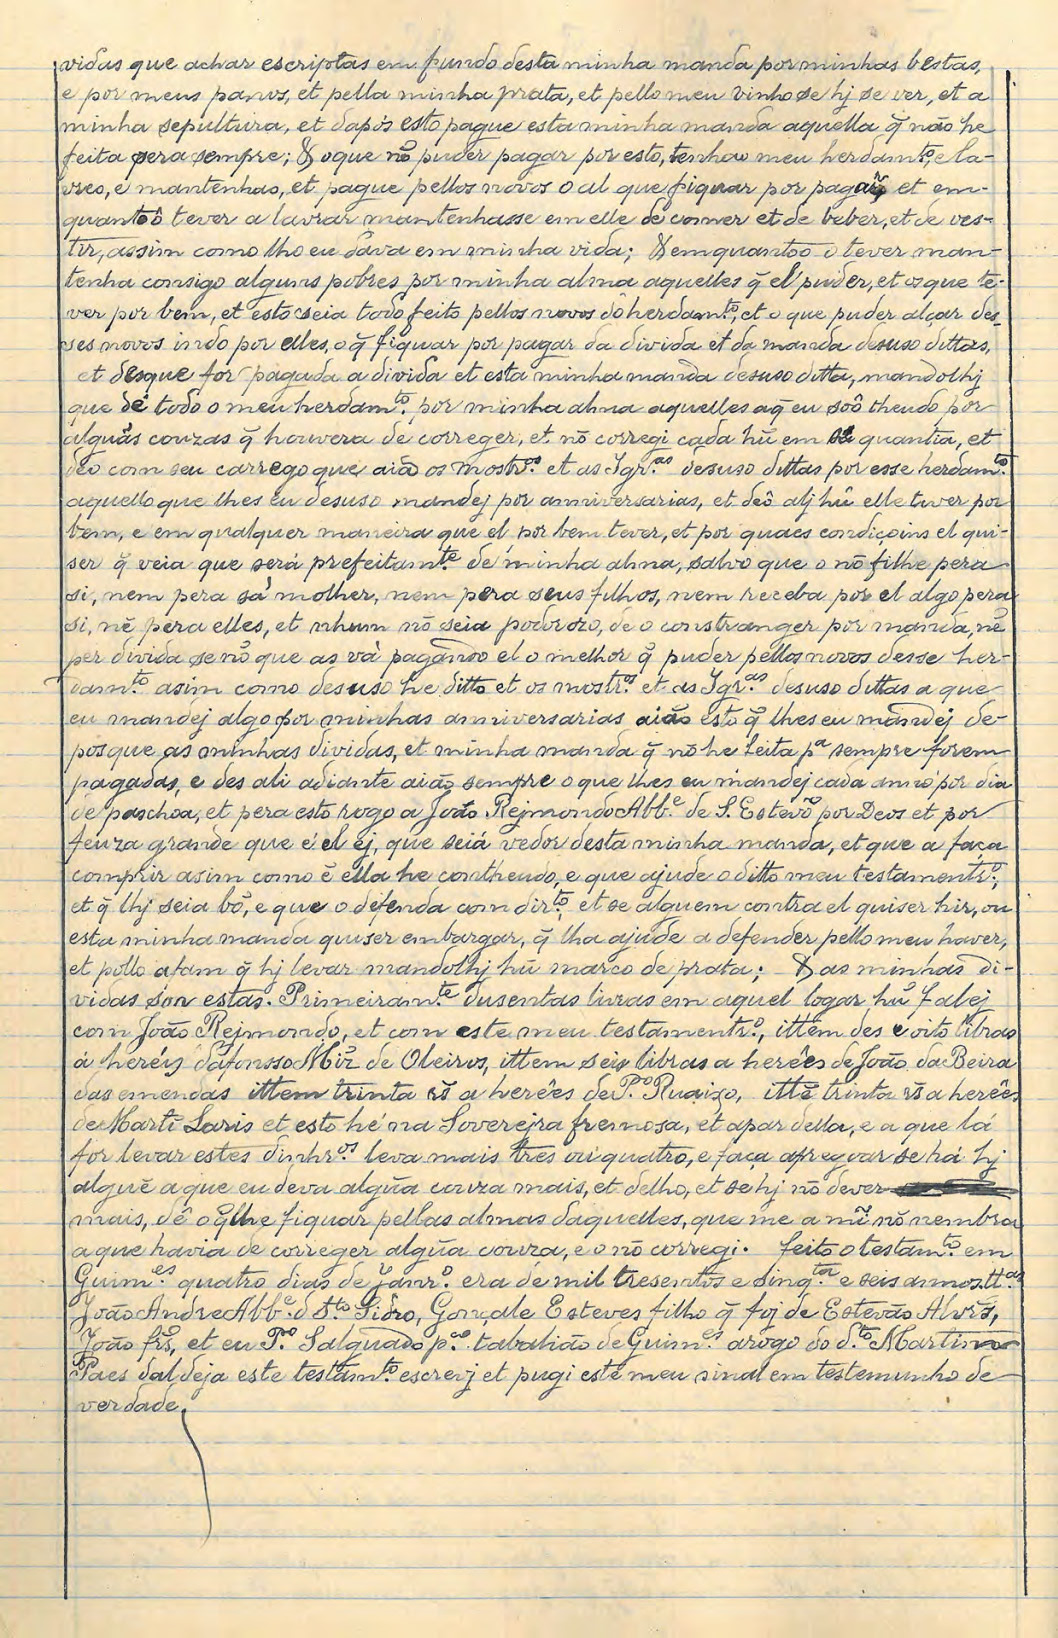 vidas que achar escriptas em fundo desta minha manda por minhas bestas,
e por meus panos, et pella minha prata, et pello meu vinho se hj se ver, et a
minha sepultura, et dapós esto pague esta minha manda aquella q̃ não he
feita pera sempre; & o que nõ puder pagar por esto, tenha o meu herdamt.º, e la-
vreo, e mantenhao, et pague pellos novos o al que fiquar por pagar, et em-
quanto o tever a lavrar mantenhasse em elle de comer et de beber, et de ves-
tir, assim como lho eu dava em minha vida; & emquanto o tever man-
tenha consigo alguns pobres por minha alma aquelles q̃ el puder, et os que te-
ver por bem, et esto seia todo feito pellos novos do herdam.to, et o que puder alçar des-
ses novos indo por elles, o q̃ fiquar por pagar da divida et da manda desuso dittas,
et desque for pagada a divida et esta minha manda desuso ditta, mandolhj
que dê todo o meu herdam.to por minha alma aquelles a q̃ eu soô theudo por
alguãs couzas q̃ houvera de correger, et nõ corregi cada hũ em sa quantia, et
deo com seu carrego que aiaõ os mostr.os et as Igr.as desuso dittas por esse herdam.to
aquello que lhes eu desuso mandej por anniversarias, et deô alj hu elle tiver por
bem, e em qualquer maneira que el por bem tever, et por quaes condiçoins el qui-
ser q̃ veia que será prefeitam.te de minha alma, salvo que o nõ filhe pera
si, nem pera sá molher, nem pera seus filhos, nem receba por el algo pera
si, nẽ pera elles, et nhum nõ seia podorozo, de o constranger por manda, nẽ
per divida se nõ que as vá pagando el o melhor q̃ puder pellos novos desse her-
dam.to asim como desuso he ditto et os mostr.os et as Igr.as desuso dittas a que
eu mandej algo por minhas anniversarias aiaõ esto q̃ lhes eu mandej de-
pos que as minhas dividas, et minha manda q̃ nõ he feita p.a sempre forem
pagadas, e des ali adiante aiaõ sempre o que lhes eu mandej cada anno por dia
de paschoa, et pera esto rogo a João Rejmondo Abb.e de S. Estevõ por Deos et por
feuza grande que é el ej, que seiá vedor desta minha manda, et que a faça
comprir asim como ẽ ella he contheudo, e que ajude o ditto meu testamentr.º,
et q̃ lhj seia bõ, e que o defenda com dir.to, et se alguem contra el quiser hir, ou
esta minha manda quiser embargar, q̃ lha ajude a defender pello meu haver,
et pollo afam q̃ hj levar mandolhj hũ marco de prata; & as minhas di-
vidas son estas. Primeiram.te dusentas livras em aquel logar hu falej
com João Rejmondo, et com este meu testamentr.º, ittem des e oito libras
á heréis dafonsso Miz de Oleiros, ittem seis libras a herêes de João da Beira
das emendas ittem trinta rs̃ a herêes de P.º Ruaizo, ittẽ trinta rs̃ a herêes
de Martĩ Laris et esto hé na Soverejra fremosa, et apar della, e a que lá
for levar estes dinhr.os leva mais tres ou quatro, e faça apregoar se há hj
alguẽ a que eu deva algũa couza mais, et delho, et se hj nõ dever
mais, dê o q̃ lhe fiquar pellas almas daquelles, que me a mĩ nõ nembra
a que havia de correger algũa couza, e o nõ corregi. feito o testam.to em
Guim.es quatro dias de Janr.º era de mil tresentos e sinq.ta e seis annos tt.as
João Andre Abb.e d S.to Sidro, Gonçale Esteves filho q̃ foj de Estevão Alvrẽs,
João frz̃, et eu P.º Salguado p.co tabalião de Guim.es a rogo do d.to Martim
Paes daldeja este testam.to escrevj et pugi este meu sinal em testemunho de
verdade.